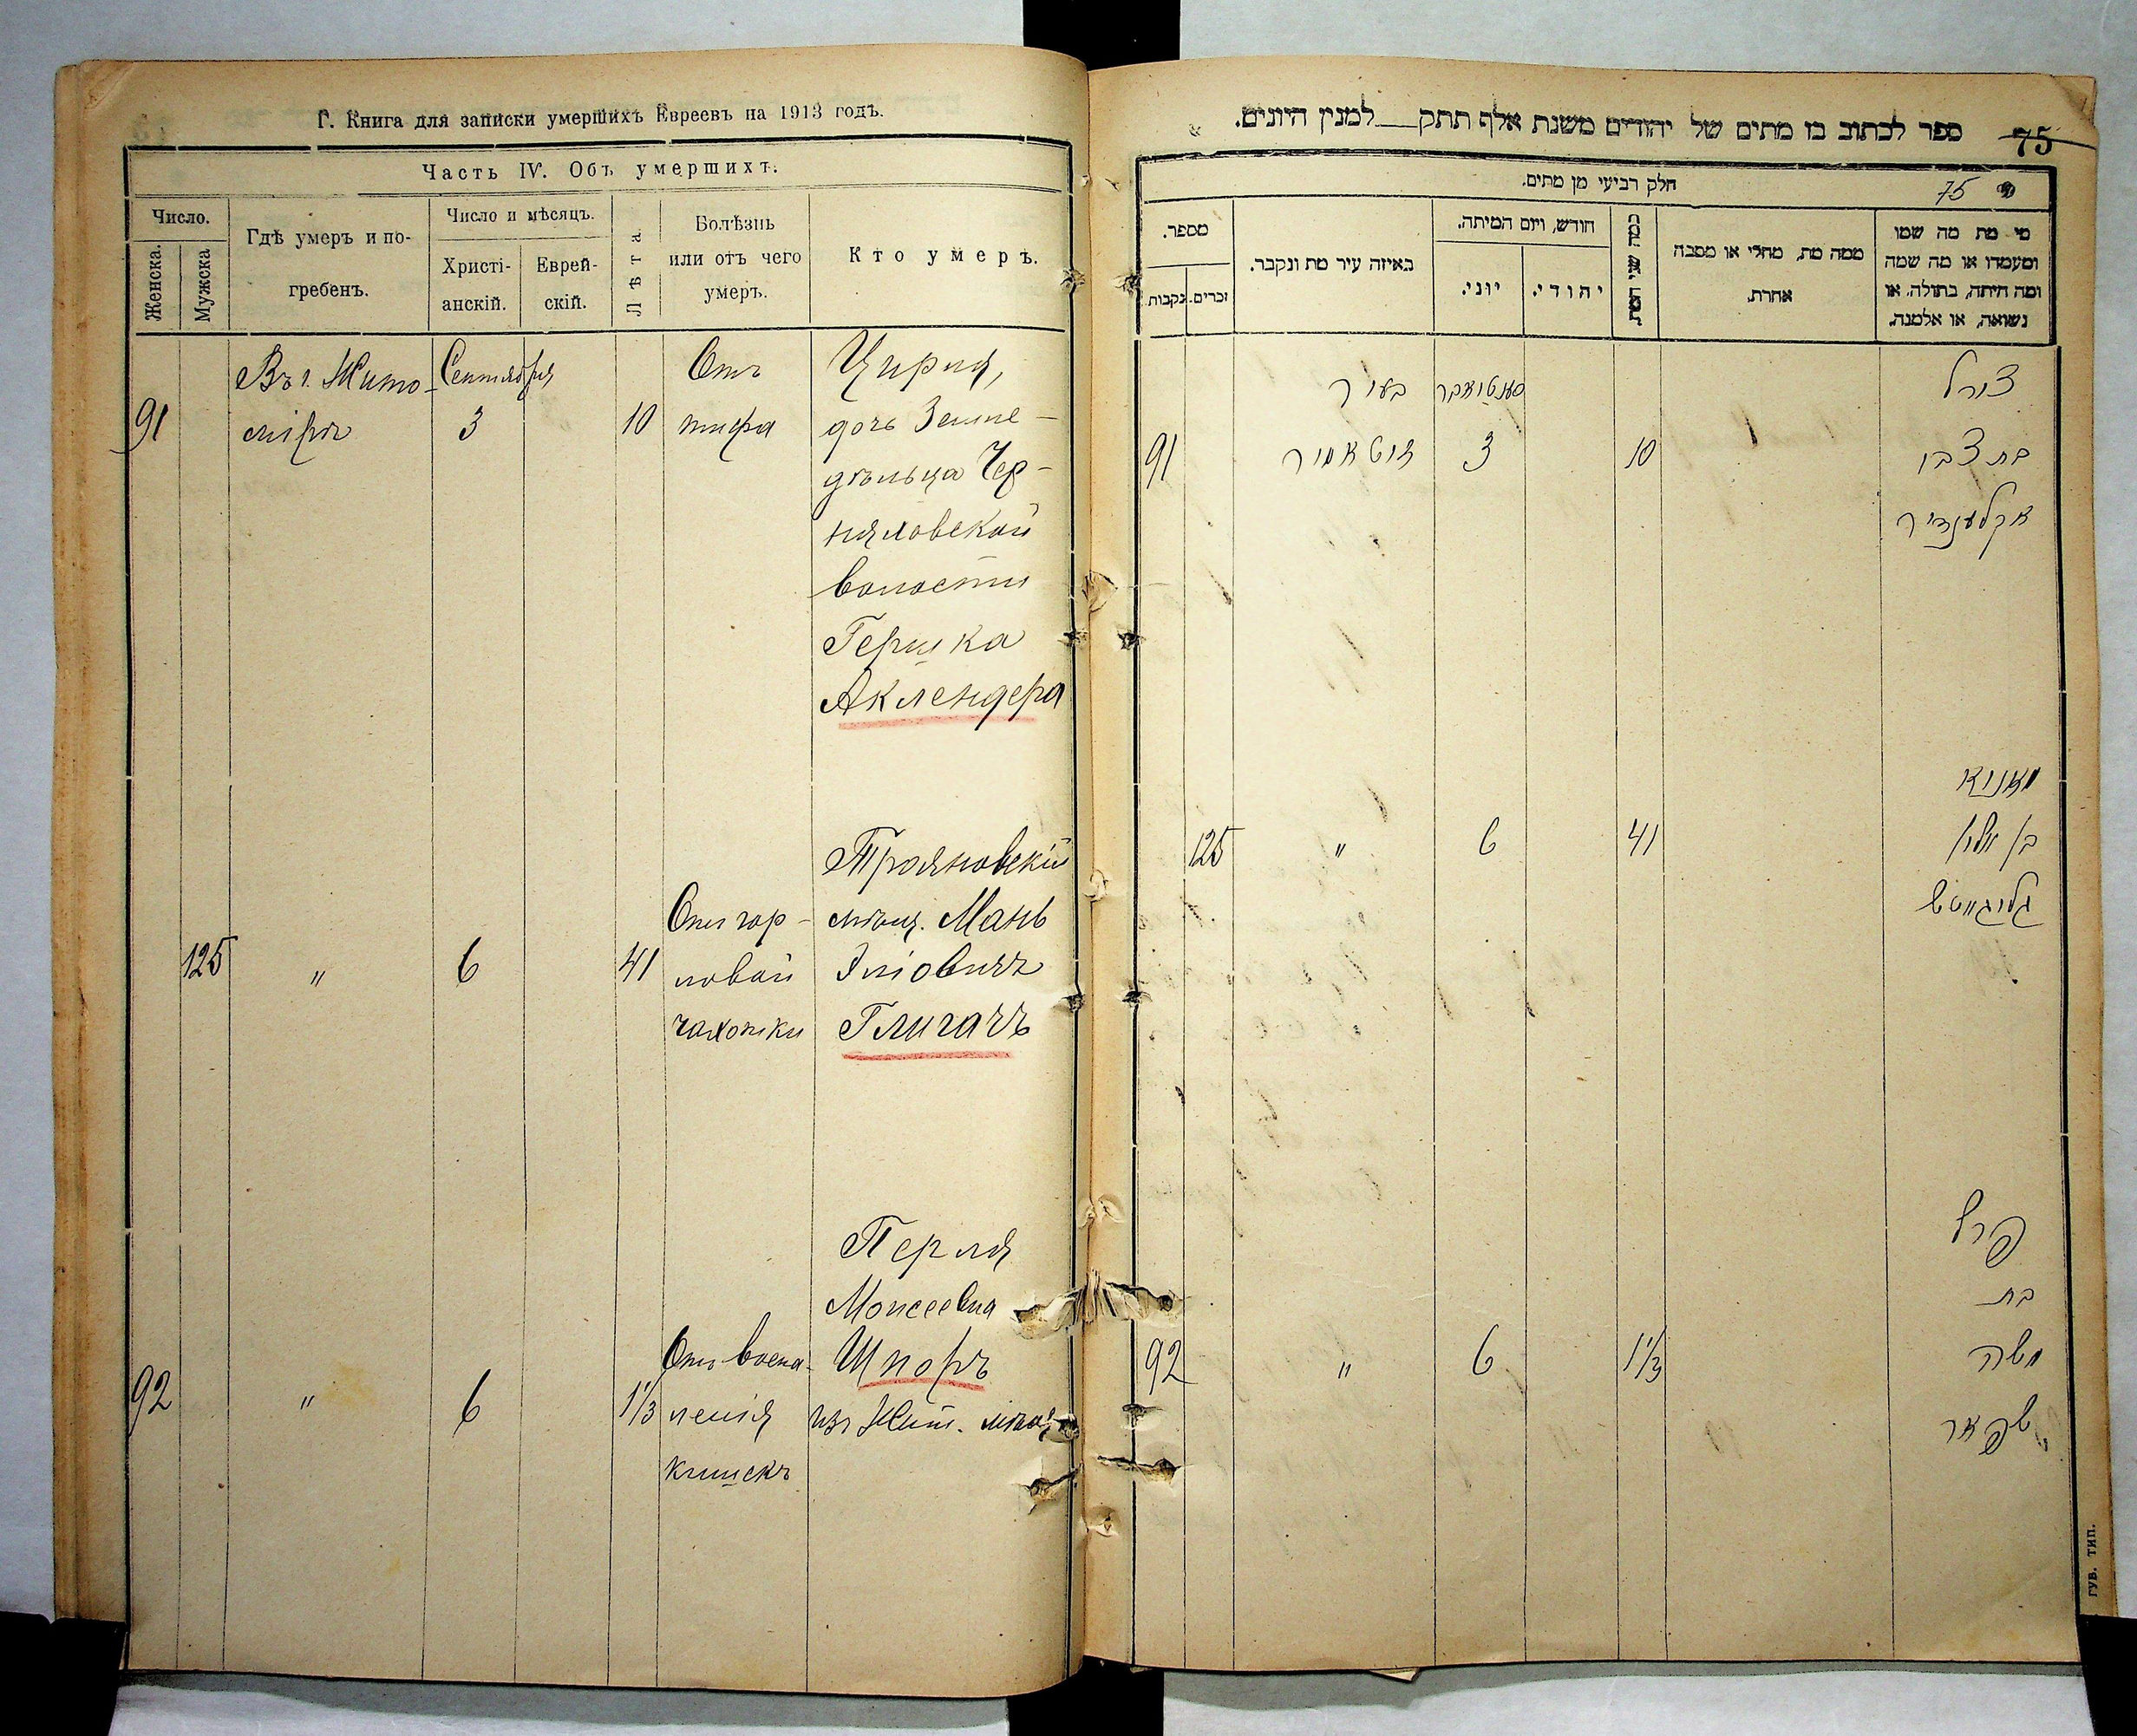 Г. Книга для записки умершихъ Евреевъ на 1913 годъ.
Часть IV. Объ умершихъ.
Число.
Женска.
Мужска
Гдѣ умеръ и по-
гребенъ.
Число и мѣсяцъ.
Христі-
анскій.
Еврей-
скій.
Лѣта.
Болѣзнь
или отъ чего
умеръ.
Кто умеръ.
91
Въ г. Жито-
мірѣ
Сентября
3
10
Отъ
тифа
Цирля,
дочь Земле-
дѣльца Чер-
няховской
волости
Гершка
Аклендера
125
"
6
41
Отъ гор-
ловой
чахотки
Трояновскій
мѣщ. Мань
Эліовичъ
Глигачъ
92
"
6
1 1/3
Отъ воспа-
ленія
кишекъ
Перля
Моисеевна
Шпоръ
изъ Жит. мѣщ.
ספר לכתוב בו מתים של יהודים משנת אלף תתק___למנין היונים.
75
חלק רביעי מן מתים.
75
מספר.
נקבות
זכרים.
באיזה עיר מת ונקבר.
חודש, ויום המיתה.
יוני.
יהודי.
ממה מת, מחלי או מסבה
אחרת.
מי מת מה שמו
ומעמדו או מה שמה
ומה היתה, בתולה, או
נשואה, או אלמנה.
91
בעיר
זיטאמיר
סענטיאבר
3
10
צירל
בת צבי
אקלענדיר
125
"
6
41
מאניא
בן אליי
92
"
6
1 1/3
פרל
בת
משה
שפאר
ГУБ. ТИП.